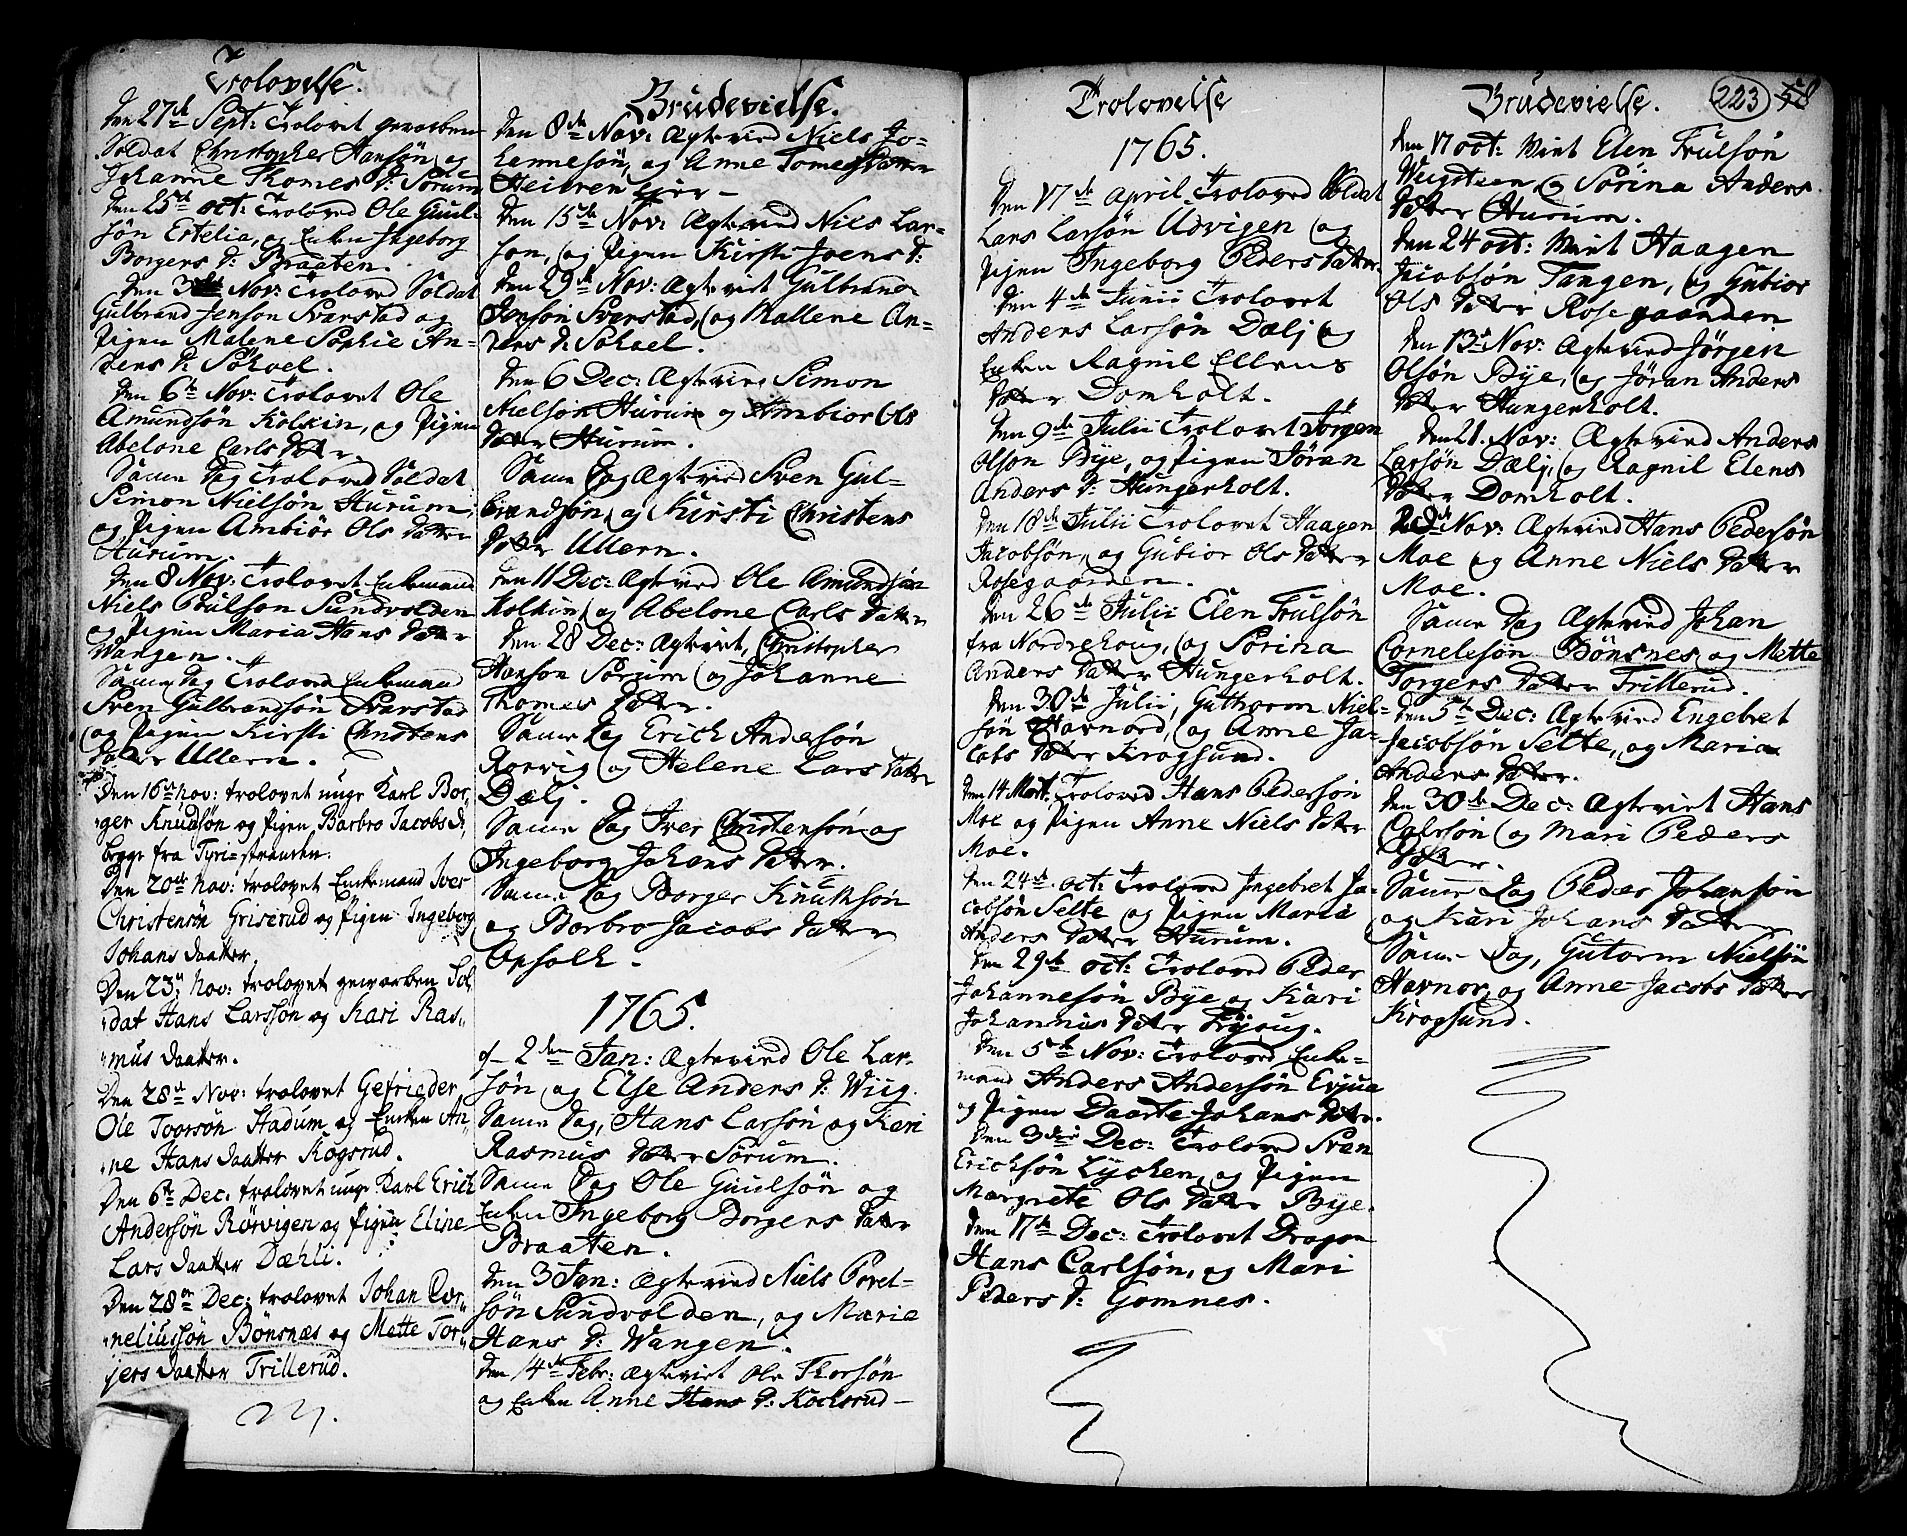 Trolovelse.
den 27de Sept: Trolovet gevorben
Soldat Christopher Hansøn og
Johanne Thomes D: Sørum
den 25de oct: Troloved Ole Guul-
søn Estelia, og Enken Ingeborg
Borgers D: Braaten.
den 3de Nov: Troloved Soldat
Gulbrand Jenson Svarstad og
Pigen Malene Sophie An-
ders D: Søhoel.
den 6te Nov: Trolovet Ole
Amundsøn Kolkin, og Pigen
Abelone Carls Datter.
Samme Dag Troloved Soldat
Simon Nielsøn Hurum,
og Pigen Ambiør Ols Datter
Hurum.
den 8 Nov: Trolovet Enkemand
Niels Poulson Sundvolden
og Pigen Maria Hans Datter
Wangen.
Samme Dag Troloved Enkemand
Sven Gulbrandsøn Svarstad
og Pigen Kirsti Christens
Datter Ullern.
Den 16de nov: trolovet unge Karl Bor-
ger Knudsøn og Pigen Barbro Jacobs D,
begge fra Tyri-stranden.
Den 20de nov: trolovet Enkemand Iver
Christensøn Griserud og Pigen Ingeborg
Johans Daatter.
Den 23de nov: trolovet gevorben Sol-
dat Hans Larssøn og Kari Ras-
mus Daatter.
Den 28de Nov: trolovet Gefrieder
Ole Toorsøn Stadum og Enken An-
ne Hans Daatter Kogsrud.
Den 6te Dec: trolovet unge Karl Erich
Andersøn Rørvigen og Pigen Eline
Lars Daatter Dæhli.
Den 28de Dec: trolovet Johan Cor-
neliussøn Bønsnæs og Mette Tor-
jers Daatter Trillerud.
Brudevielse.
den 8de Nov: Ægtevied Niels Jo-
hannesøn, og Anne Tomes Datter
Heieren
den 15de Nov: Ægtevied Niels Lar-
son, og Pigen Kirsti Joens D:
den 29de Nov: Ægteviet Gulbrand
Jensøn Svarstad, og Mallene An-
ders D: Søhoel.
den 6 Dec: Ægtevied Simon
Nielsøn Hurum og Ambior Ols
Datter Hurum.
Samme Dag Ægtevied Sven Gul-
brandsøn, og Kirsti Christens
Datter Ullern.
den 11 Dec: Ægtevied Ole Amundsøn
Kolkin, og Abelone Carls Datter
den 28 Dec: Ægteviet, Christopher
Hanson Sørum og Johanne
Thomes Datter.
Samme Dag Erich Andersøn
Rørvig og Helene Lars Datter
Dælj.
Samme Dag Iver Christensøn og
Ingeborg Johans Datter.
Samme Dag Borger Knutsøn
og Borbro Jacobs Datter
Opsalh.
1765.
2den Jan: Ægtevied Ole Lar-
søn, og Else Anders D: Wiig.
Samme Dag, Hans Larsøn og Kari
Rasmus Datter Sørum.
Samme Dag Ole Guulsøn og
Enken Ingeborg Borgers Datter
Braaten.
den 3 Jan: Ægtevied Niels Povel-
søn Sundvolden, og Maria
Hans D: Wangen.
den 14de Febr: Ægteviet Ole Thorsøn
og Enken Anne Hans D: Kocksrud
Trolovelse
1765.
den 17de April Troloved Soldat
Lars Larsøn Udvigen og
Pigen Ingeborg Peders Datter
den 4de Junii Trolovet
Anders Larsøn Dælj og
Enken Ragnil Ellens
Datter Domholt.
den 9de Julii Trolovet Jörgen
Olson Bye, og Pigen Jöran
Anders D: Hungerholt.
den 18de Julii Trolovet Haagen
Jacobsøn, og Gubior Ols Datter
Rosegaarden.
den 26de Julii Elen Trulsøn
fra Nordrehoug, og Sörina
Anders Datter Hungerholt.
den 30de Julii, Guttorm Niel-
søn Havnord, og Anne Ja-
cobs Datter Krogsund.
den 14 Mart: Troloved Hans Pedersøn
Moe og Pigen Anne Niels Datter
Moe.
den 24de oct: Troloved Ingebret Ja-
cobsøn Selte og Pigen Maria
Anders Datter Hurum.
den 29de oct: Troloved Peder
Johannesøn Bye og Kari
Johannis Datter
den 5te Nov: Troloved Enke-
mand Anders Andersøn Evjua
og Pigen Daarte Johans Datter.
den 3die Dec: Troloved Sven
Ericksøn Lychen, og Pigen
Margrete Ols Datter Bye.
den 17de Dec: Trolovet Dragon
Hans Carlsøn, og Mari
Peders D: Gomnes.
Brudevielse. 223 58
den 17 oct: Viiet Elen Trulsøn
Veigsteen og Sörina Anders
Datter Hurum.
den 24 oct: Viiet Haagen
Jacobsøn Tangen, og Gubior
Ols Datter Rosegaarden
den 13de Nov: Ægtevied Jörgen
Olsøn Bye, og Jöran Anders
Datter Hungerholt.
den 21. Nov: Ægtevied Anders
Larsøn Dælj, og Ragnil Elens
Datter Domholt.
Nov: Ægtevied Hans Pedersøn
Moe og Anne Niels Datter
Moe.
Samme Dag Ægtevied Johan
Cornelesøn Bönsnes og Mette
Torgers Datter Trillerud.
den 5te Dec: Ægtevied Engebret
Jacobsøn Selte, og Maria
Anders Datter.
den 30de Dec: Ægteviet Hans
Carlsøn og Mari Peders
Datter.
Samme Dag Peder Johansøn
og Kari Johans Datter
Samme Dag, Gutorm Nielsøn
Havnor, og Anne Jacobs Datter
Krogsund.